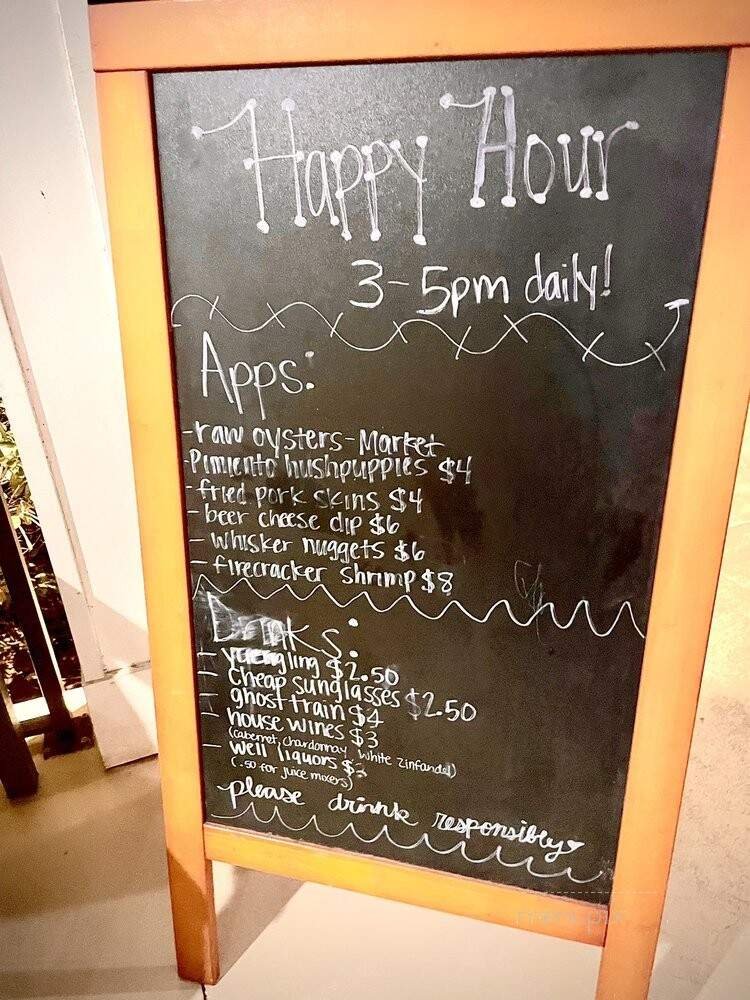 Happy Hour
3-5pm daily!
Apps:
-raw oysters-Market
-Pimiento hushpuppies $4
-fried pork skins $4
-beer cheese dip $6
- whisker nuggets $6
- firecracker shrimp $8
Drinks:
- yuengling $2.50
- Cheap sunglasses $2.50
- ghost train $4
- house wines $3
(cabernet, chardonnay, white zinfandel)
- well liquors
(.50 for juice mixers)
please drink responsibly